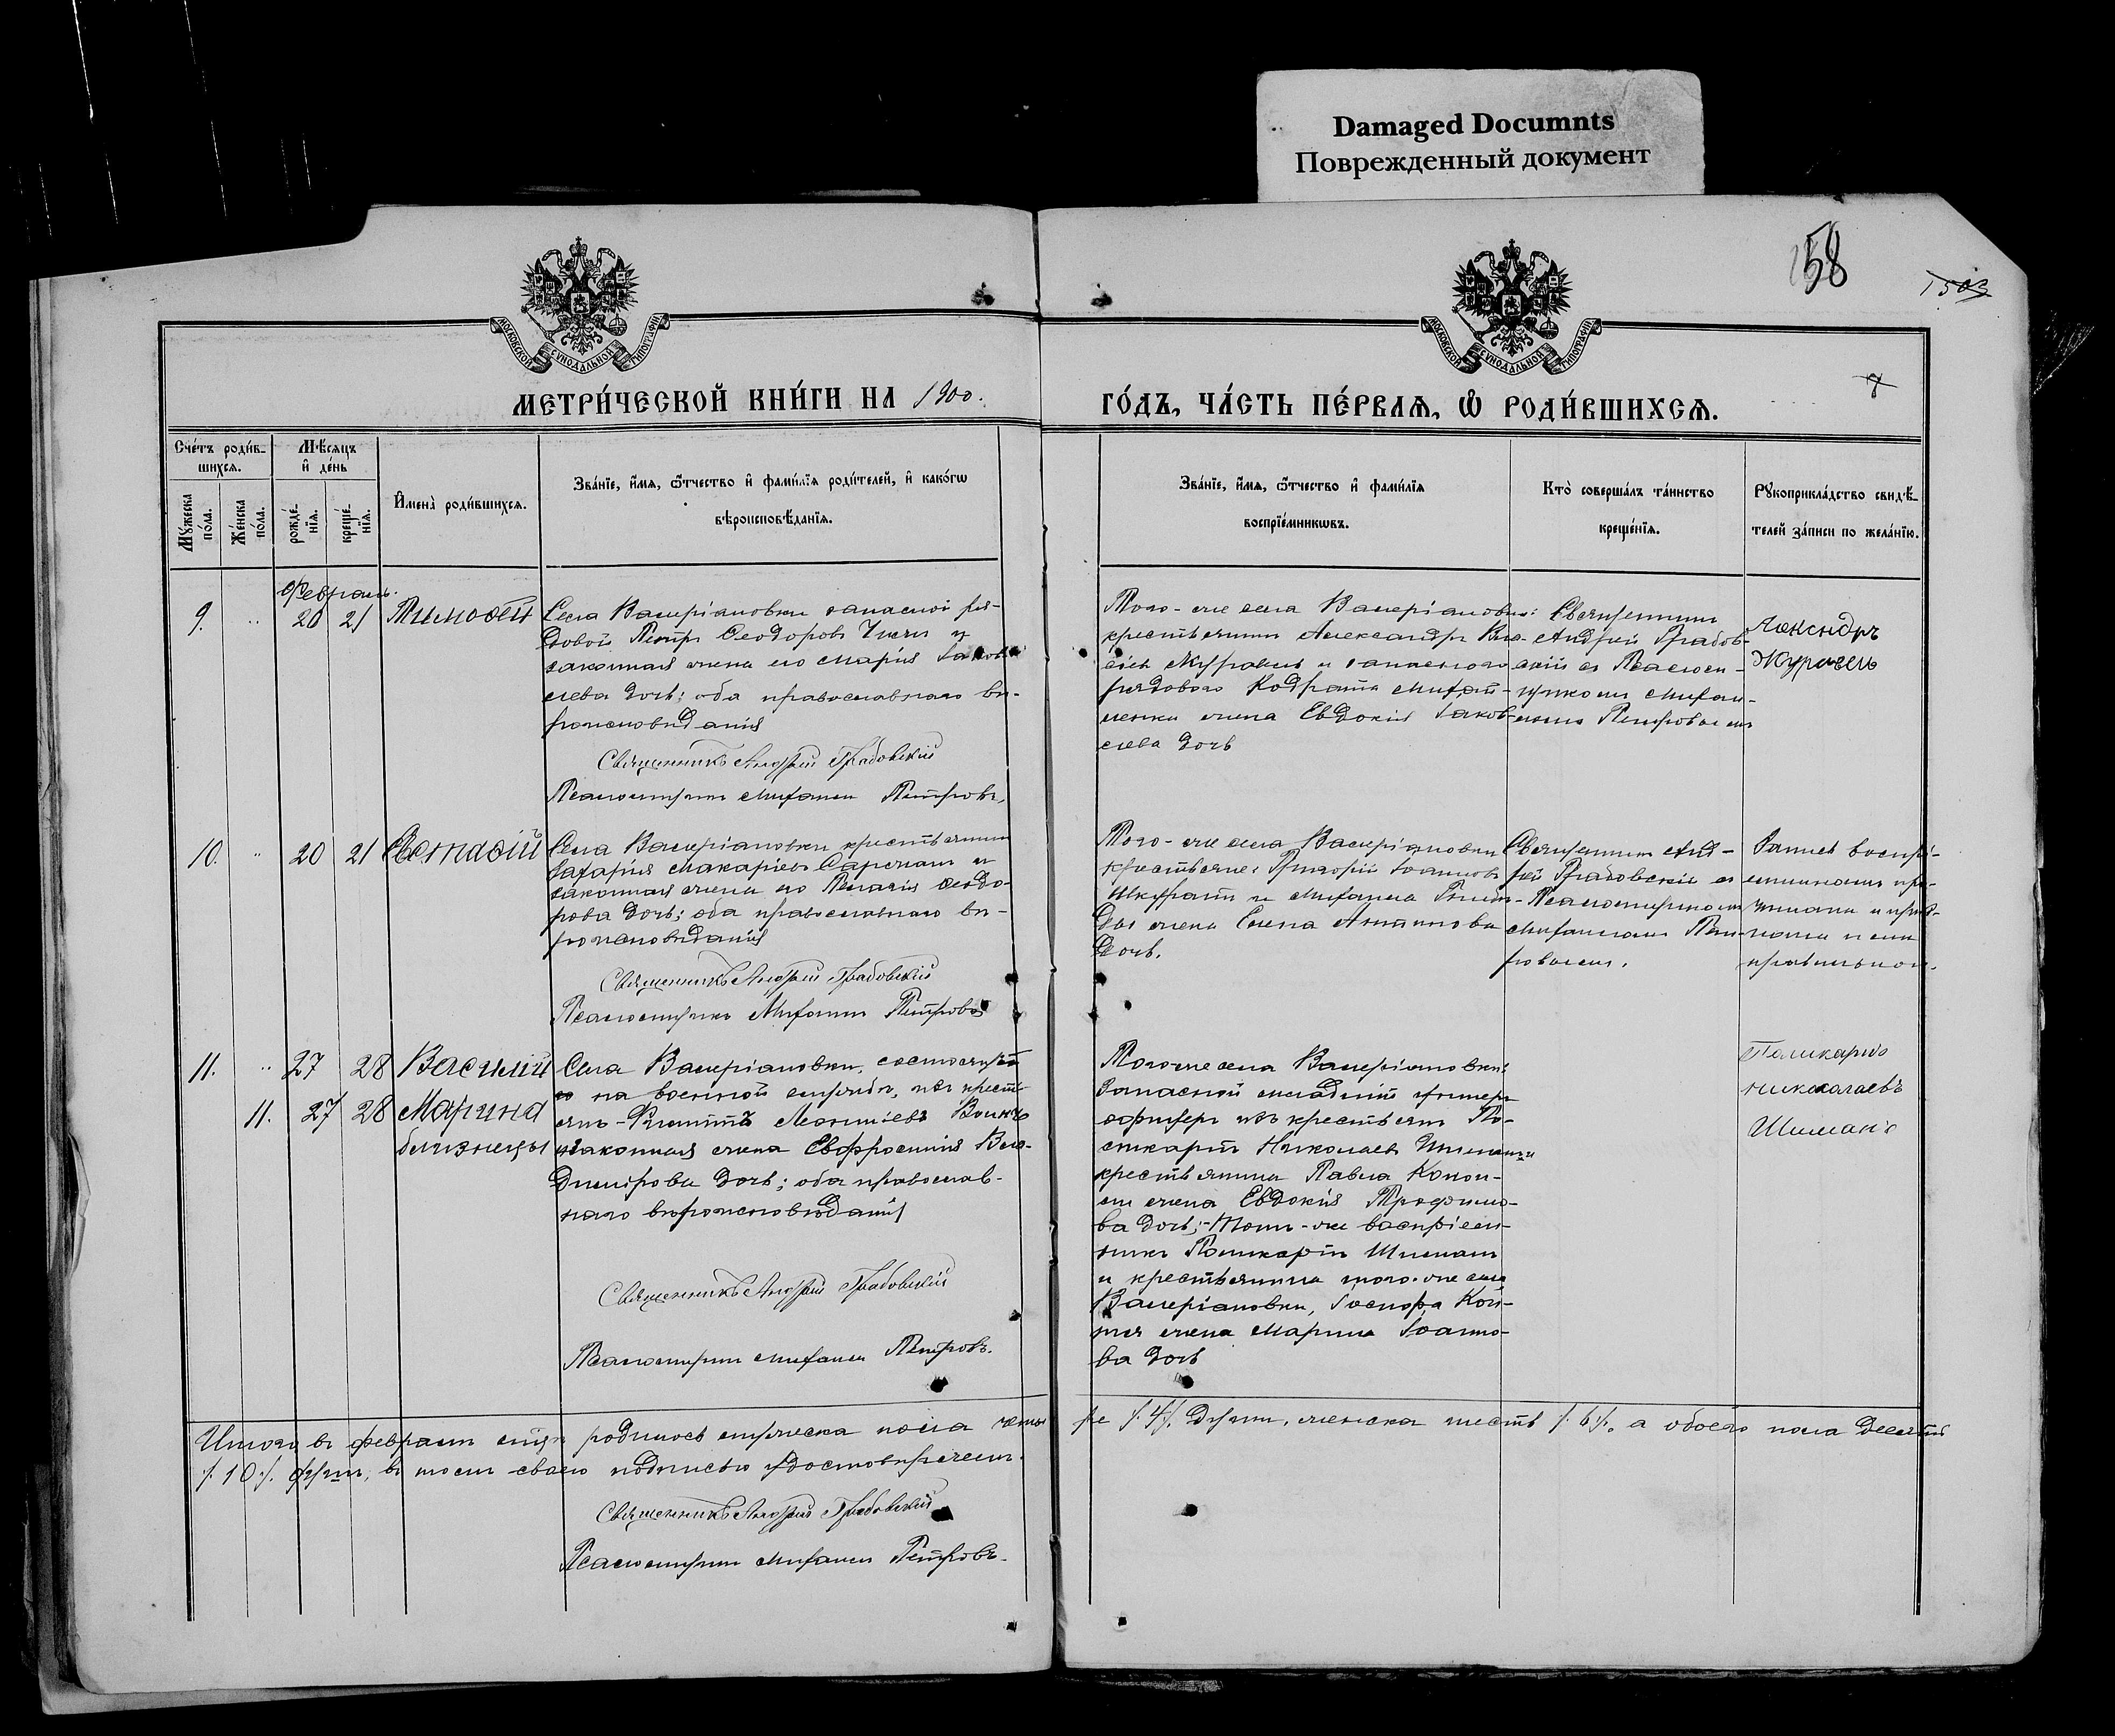 Damaged Documnts
Поврежденный документ
58
1503
МОСКОВСКОЙ СУНОДАЛЬНОЙ ТИПОГРАФІИ
МОСКОВСКОЙ СУНОДАЛЬНОЙ ТИПОГРАФІИ
7
МЕТРИ́ЧЕСКОЙ КНИ́ГИ НА 1900.
ГО́ДЪ, ЧА́СТЬ ПЕ́РВАЯ, Ѡ҆ РОДИ́ВШИХСЯ.
Сче́тъ роди́в-
шихся.
Мѣ́сяцъ
и҆ де́нь
Мꙋ́жеска
по́ла.
Же́нска
по́ла.
рожде́-
нїя.
креще́-
нїя.
И҆мена̀ роди́вшихся.
Зва́нїе, и҆́мя, ѻ҆́тчество и҆ фами́лїя роди́телей, и҆ како́гѡ
вѣроисповѣ́данїя.
Зва́нїе, и҆́мя, ѻ҆́тчество и҆ фами́лїя
воспрїе́мникѡвъ.
Кто̀ соверша́лъ та́инство
креще́нїя.
Рꙋкоприкла́дство свидѣ́-
телей за́писи по жела́нїю.
Февраль.
9. " 20 21 Тимофей
Села Валеріановки запасной ря-
довой Петръ Ѳеодоровъ и
законная жена его Марія Іаков-
лева дочь; оба православнаго вѣ-
роисповѣданія
Священникъ Андрей Грабовскій
Псаломщикъ Михаилъ Петровъ.
Того-же села Валеріановки:
крестьянинъ Александръ
Журавель и запасного
рядового Кодрата
жена Евдокія Іаков-
лева дочь
Священникъ
Андрей Грабов-
скій съ Псалом-
щикомъ Михаи-
ломъ Петровымъ
Журавель
10. " 20 21 Евстафій
Села Валеріановки крестьянинъ
Захарія Макаріевъ и
законная жена его Пелагія Ѳеодо-
рова дочь; оба православнаго вѣ-
роисповѣданія
Священникъ Андрей Грабовскій
Псаломщикъ Михаилъ Петровъ
Того-же села Валеріановки
крестьяне: Григорій Іоанновъ
Шкуратъ и Михаила
жена Елена
дочь.
Священникъ Анд-
рей Грабовскій съ
Псаломщикомъ
Михаиломъ Пет-
ровымъ.
Запись воспрі-
емникамъ про-
читана и приз-
нана ими
правильною.
11. " 27 28 Василій
11. 27 28 Марина
близнецы
Села Валеріановки, состоящій
на военной службѣ, изъ кресть-
янъ Леонтіевъ
законная жена Евфросинія Вла-
димірова дочь; оба православ-
наго вѣроисповѣданія
Священникъ Андрей Грабовскій
Псаломщикъ Михаилъ Петровъ.
Того-же села Валеріановки:
Запасной младшій унтеръ
офицеръ изъ крестьянъ По-
ликарпъ Николаевъ Шиманъ и
крестьянина Павла
жена Евдокія Трофимо-
ва дочь; Тотъ-же воспріем-
никъ Поликарпъ Шиманъ
и крестьянина того-же села
Валеріановки, Іосифа
жена Марина Іоанно-
ва дочь
Поликарпъ
Николаевъ
Шиманъ
Итого въ февралѣ мѣсяцѣ родилось мужеска пола четы-
ре /.4/. души, женска шесть /.6/., а обоего пола десять
/.10/. душъ, въ томъ своею подписью удостовѣряемъ.
Священникъ Андрей Грабовскій
Псаломщикъ Михаилъ Петровъ.